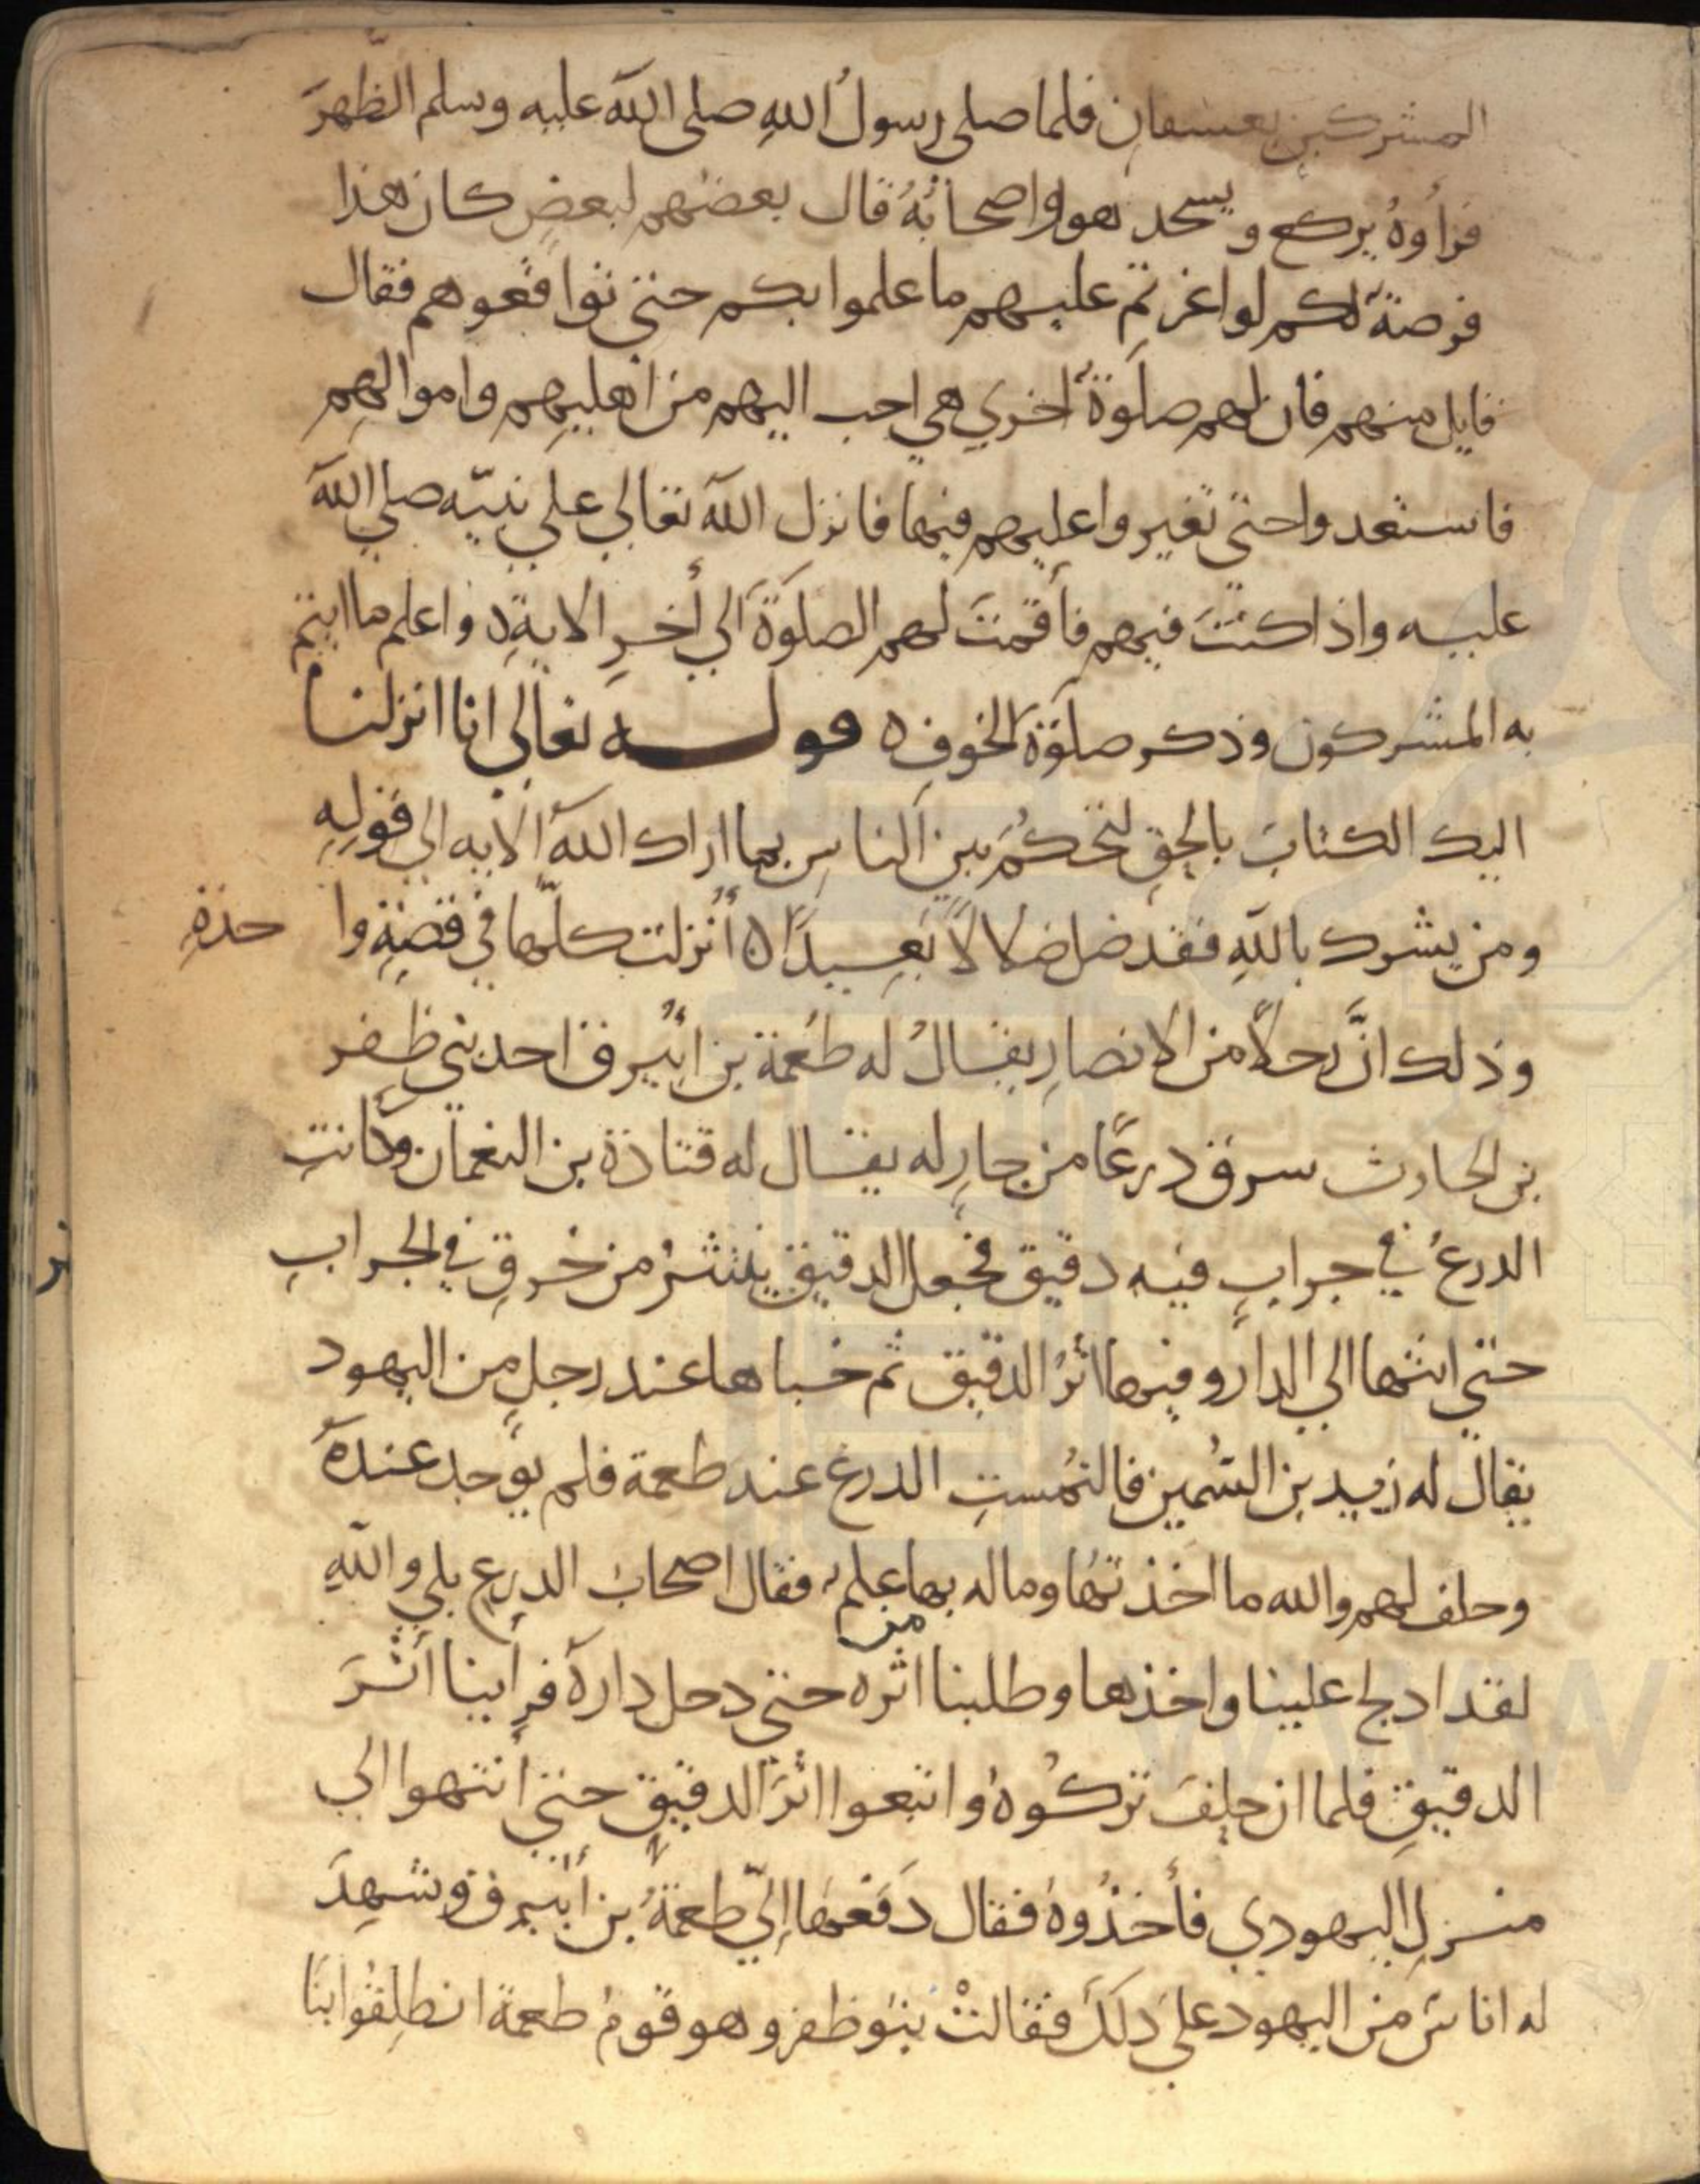 المشركين بعسفان فلما صلى رسولُ اللهِ صلى اللهَ عليه وسلم الظّهرَ
فرأوهُ يركع ويسجد هو واصحابُهُ قال بعضهم لبعضٍ كان هذا
فرصةً لكم لو اغرتم عليهم ما علموا بكم حتى تواقعوهم فقال
قايل منهم فان لهم صلوةً اخري هي احب اليهم من اهليهِم واموالهِم
فاستعدوا حتى تغيروا عليهم فيها فانزل الله تعالي علي نبيّه صلي الله
عليه واذا كنتَ فيهم فأقمتَ لهم الصلوَةَ الي أخرِ الايةِ ه واعلم ما ايتم
به المشركون وذكر صلوَةَ الخوفِ ه قوله تعالي انا انزلنا
اليك الكتابَ بالحقِ لتحكُمَ بين الناسِ بما اراك اللهُ الايه الي قولِهِ
ومن يشرك باللهِ فقد ضل ضلالاً بَعِيدًا ه أُنزلت كلّها في قصّةِ وا حدةِ
وذلك انَّ رجلاً من الانصارِ يقالُ له طُعمة بن ابُيرق احد بني ظفر
بن الحارث سرق درعًا من جارٍ له يقال له قتادة بن النعمان وكانتِ
الدرعُ في جرابٍ فيه دقيق فجعل الدقيق ينتثرُ من خرقٍ في الجرابِ
حتي انتها الي الدار وفيها اثرُ الدقيق ثم خباها عند رجلٍ من اليهود
يقال له زيد بن السُّمين فالتُمستِ الدرع عند طعمة فلم يوجد عندهَ
وحلف لهم والله ما اخذتها وما له بها من علم فقال اصحابُ الدرعِ بلي واللهِ
لقد ادلج علينا واخذها وطلبنا اثره حتى دخل دارهَ فرأينا أثَرَ
الدقيقِ فلما ان حلِفَ تركُوهُ واتبعوا اثرَ الدقيقِ حتي أنتهوا الي
منزلِ اليهودي فأخذُوهُ فقال دَفعَها إليّ طعمةُ بن أُبيرق وشهِدَ
له اناسٌ من اليهود علي ذلكَ فقالتْ بنو ظفر وهو قومُ طعمة انطلِقُوا بنَا